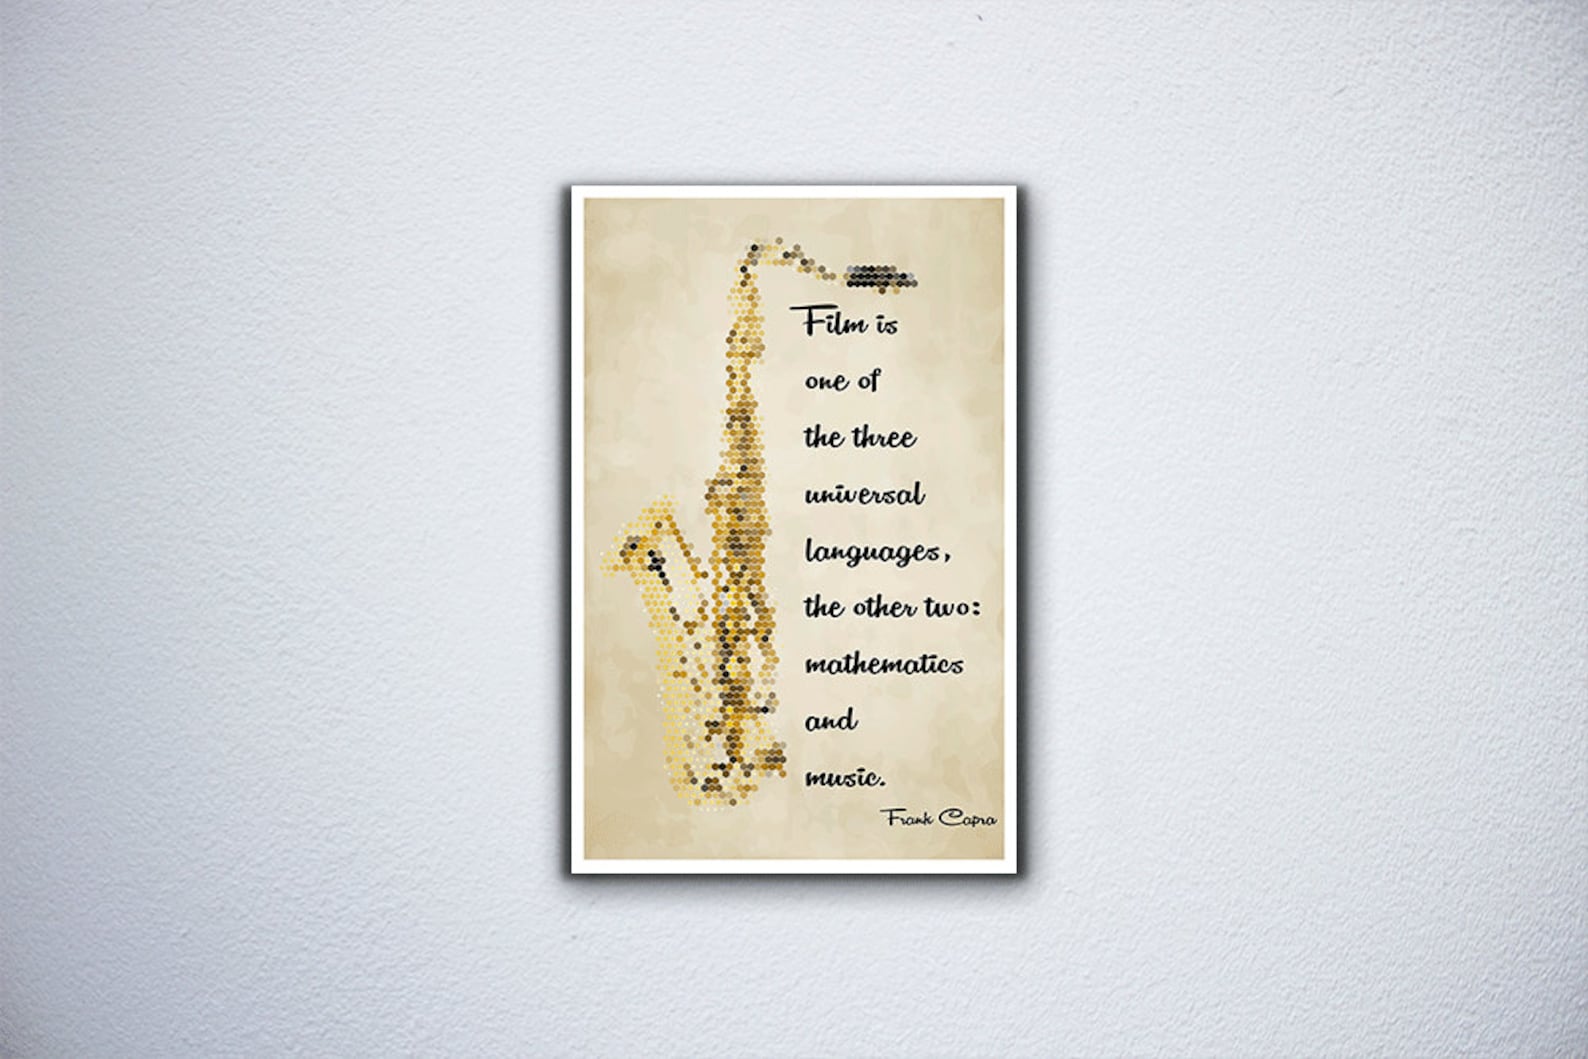 Film is
one of
the three
universal
languages,
the other two:
mathematics
and
music.
Frank Capra